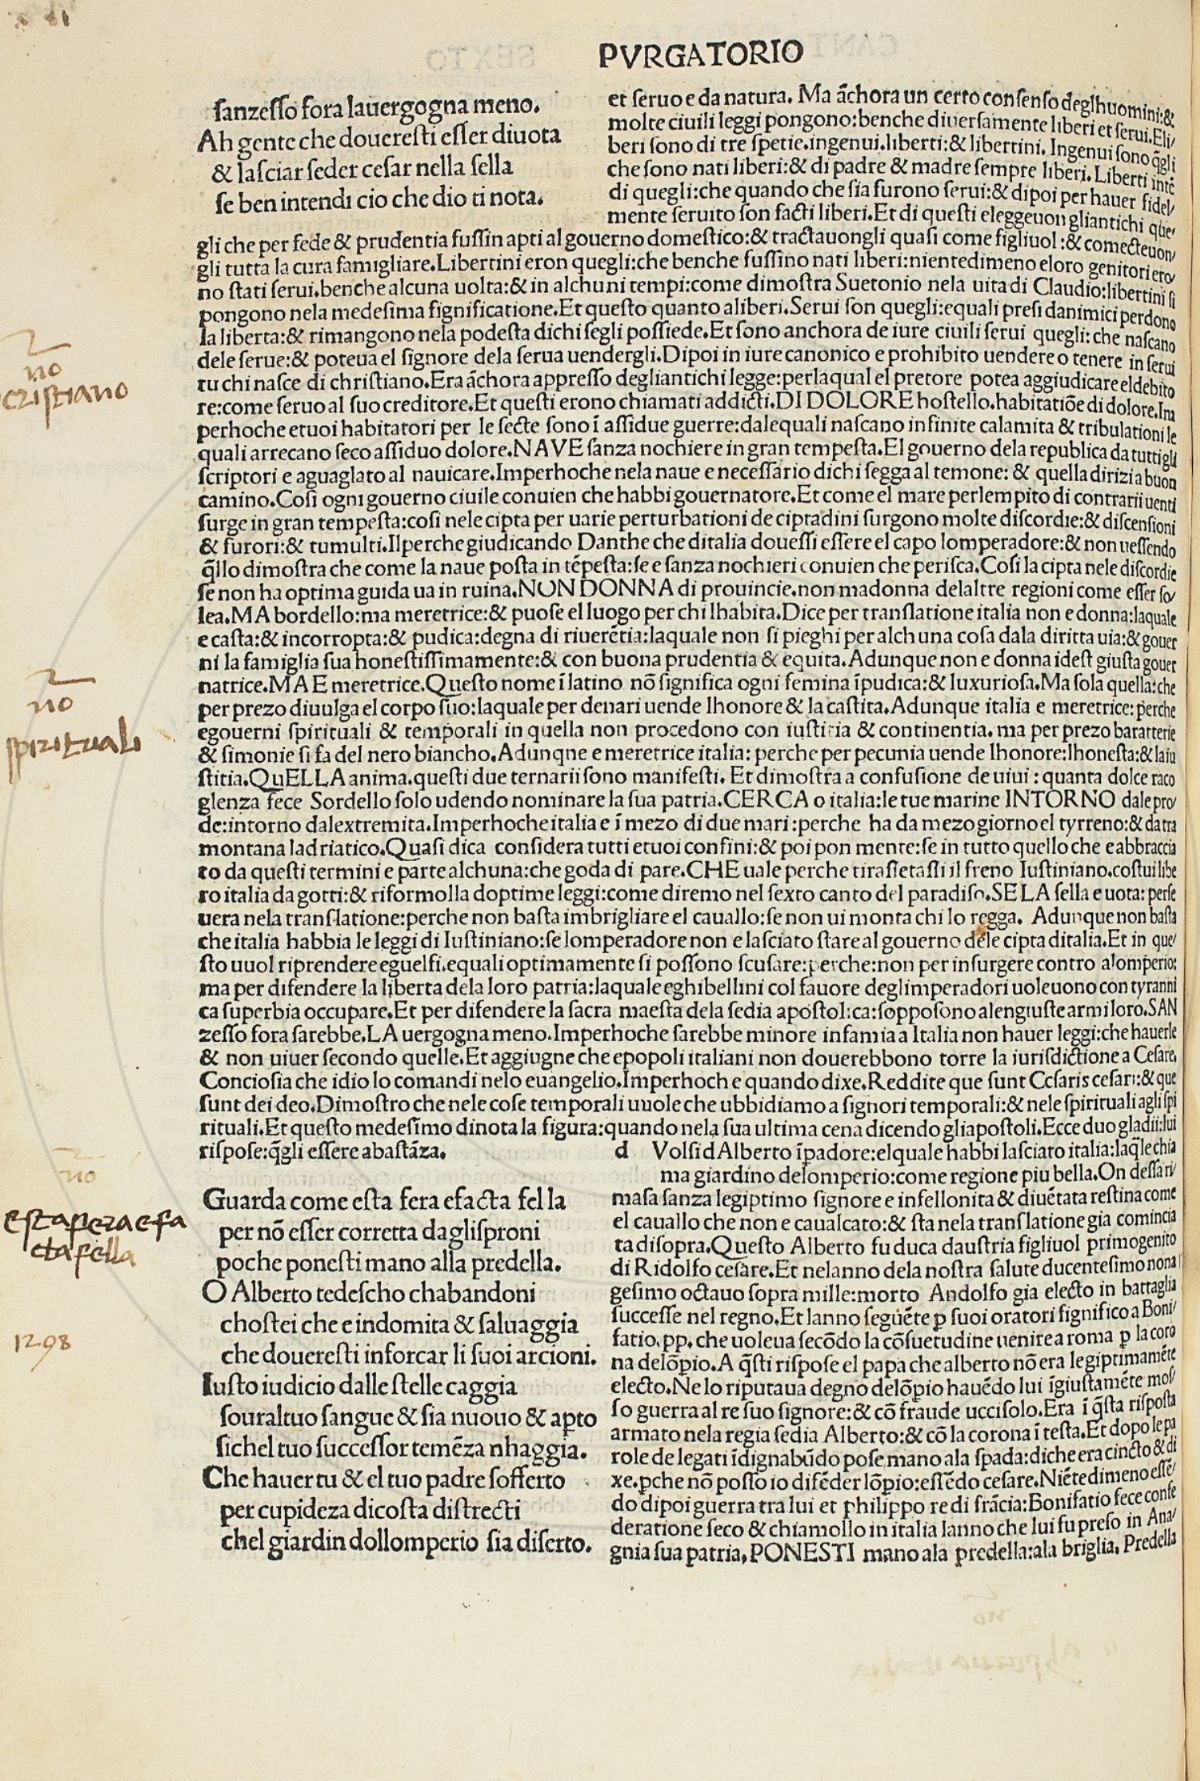 PVRGATORIO
sanzesso fora lauergogna meno.
Ah gente che doueresti esser diuota
& lasciar seder cesar nella sella
se ben intendi cio che dio ti nota.
et seruo e da natura. Ma āchora un certo consenso deglhuomini:&
molte ciuili leggi pongono:benche diuersamente liberi et serui.Eli/
beri sono di tre spetie.ingenui.liberti:& libertini. Ingenui sono q̄gli
che sono nati liberi:& di padre & madre sempre liberi. Liberti intē
di quegli:che quando che sia furono serui:& dipoi per hauer fidel/
mente seruito son facti liberi.Et di questi eleggeuon gliantichi que/
gli che per fede & prudentia fussin apti al gouerno domestico:& tractauongli quasi come figliuol :& comecteuon/
gli tutta la cura famigliare.Libertini eron quegli:che benche fussino nati liberi:nientedimeno eloro genitori ero/
no stati serui.benche alcuna uolta:& in alchuni tempi:come dimostra Suetonio nela uita di Claudio:libertini si
pongono nela medesima significatione.Et questo quanto aliberi.Serui son quegli:equali presi danimici perdono
la liberta:& rimangono nela podesta dichi segli possiede.Et sono anchora de iure ciuili serui quegli: che nascano
dele serue:& poteua el signore dela serua uendergli.Dipoi in iure canonico e prohibito uendere o tenere in serui
tu chi nasce di christiano.Era āchora appresso degliantichi legge:perlaqual el pretore potea aggiudicare eldebito
re:come seruo al suo creditore.Et questi erono chiamati addicti.DI DOLORE hostello.habitatiōe di dolore.Im
perhoche etuoi habitatori per le secte sono ī assidue guerre:dalequali nascano infinite calamita & tribulationi le
quali arrecano seco assiduo dolore.NAVE sanza nochiere in gran tempesta.El gouerno dela republica da tutti gli
scriptori e aguaglato al nauicare.Imperhoche nela naue e necessario dichi segga al temone: & quella dirizi a buon
camino.Cosi ogni gouerno ciuile conuien che habbi gouernatore.Et come el mare perlempito di contrarii uenti
surge in gran tempesta:cosi nele cipta per uarie perturbationi de ciptadini surgono molte discordie:& discensioni
& furori:& tumulti.Ilperche giudicando Danthe che ditalia douessi essere el capo lomperadore:& non uessendo
q̄llo dimostra che come la naue posta in tēpesta:se e sanza nochieri conuien che perisca.Cosi la cipta nele discordie
se non ha optima guida ua in ruina.NON DONNA di prouincie.non madonna delaltre regioni come esser so/
lea.MA bordello:ma meretrice:& puose el luogo per chi lhabita.Dice per translatione italia non e donna:laquale
e casta:& incorropta:& pudica:degna di riuerētia:laquale non si pieghi per alchuna cosa dala diritta uia:& gouer
ni la famiglia sua honestissimamente:& con buona prudentia & equita.Adunque non e donna idest giusta gouer
natrice.MA E meretrice.Questo nome ī latino nō significa ogni femina īpudica:& luxuriosa.Ma sola quella:che
per prezo diuulga el corpo suo:laquale per denari uende lhonore & la castita.Adunque italia e meretrice: perche
egouerni spirituali & temporali in quella non procedono con iustitia & continentia. ma per prezo baratterie
& simonie si fa del nero biancho.Adunqne e meretrice italia: perche per pecunia uende lhonore:lhonesta:& la iu
stitia.QuELLA anima.questi due ternarii sono manifesti. Et dimostra a confusione de uiui : quanta dolce raco
glenza fece Sordello solo udendo nominare la sua patria.CERCA o italia:le tue marine INTORNO dale pro/
de:intorno dalextremita.Imperhoche italia e ī mezo di due mari :perche ha da mezo giorno el tyrreno:& da tra
montana ladriatico.Quasi dica considera tutti etuoi confini:& poi pon mente:se in tutto quello che e abbraccia
to da questi termini e parte alchuna:che goda di pare.CHE uale perche tirassetassi il freno Iustiniano.costui libe
ro italia da gotti:& riformolla doptime leggi:come diremo nel sexto canto del paradiso.SE LA sella e uota: perse
uera nela translatione:perche non basta imbrigliare el cauallo:se non ui monta chi lo regga. Adunque non basta
che italia habbia le leggi di Iustiniano:se lomperadore non e lasciato stare al gouerno dele cipta ditalia.Et in que/
sto uuol riprendere eguelfi.equali optimamente si possono scusare:perche:non per insurgere contro alomperio:
ma per difendere la liberta dela loro patria:laquale eghibellini col fauore deglimperadori uoleuono con tyranni
ca superbia occupare.Et per difendere la sacra maesta dela sedia apostolica:sopposono alengiuste armi loro.SAN
zesso fora sarebbe.LA uergogna meno.Imperhoche sarebbe minore infamia a Italia non hauer leggi:che hauerle
& non uiuer secondo quelle.Et aggiugne che epopoli italiani non douerebbono torre la iurisdictione a Cesare.
Conciosia che idio lo comandi nelo euangelio.Imperhoche quando dixe.Reddite que sunt Cesaris cesari:& que
sunt dei deo.Dimostro che nele cose temporali uuole che ubbidiamo a signori temporali:& nele spirituali agli spi
rituali.Et questo medesimo dinota la figura:quando nela sua ultima cena dicendo gliapostoli.Ecce duo gladii:lui
rispose:q̄gli essere abastāza.
Guarda come esta fera efacta fella
per nō esser corretta daglisproni
poche ponesti mano alla predella.
O Alberto tedescho chabandoni
chostei che e indomita & saluaggia
che doueresti inforcar li suoi arcioni.
Iusto iudicio dalle stelle caggia
souraltuo sangue & sia nuouo & apto
sichel tuo successor temēza nhaggia.
Che hauer tu & el tuo padre sofferto
per cupideza dicosta distrecti
chel giardin dollomperio sia diserto.
d Volsi dAlberto īpadore:elquale habbi lasciato italia:laq̄le chia
ma giardino delomperio:come regione piu bella.On dessari/
masa sanza legiptimo signore e infellonita & diuētata restina come
el cauallo che non e caualcato:& sta nela translatione gia comincia
ta disopra.Questo Alberto fu duca daustria figliuol primogenito
di Ridolfo cesare.Et nelanno dela nostra salute ducentesimo nona
gesimo octauo sopra mille:morto Andolfo gia electo in battaglia
successe nel regno.Et lanno seguēte p suoi oratori significo a Boni/
fatio.pp. che uoleua secōdo la cōsuetudine uenire a roma p la coro
na delōpio.A q̄sti rispose el papa che alberto nō era legiptimamēte
electo.Ne lo riputaua degno delōpio hauēdo lui īgiustamēte mos/
so guerra al re suo signore:& cō fraude uccisolo.Era ī q̄sta risposta
armato nela regia sedia Alberto:& cō la corona ī testa.Et dopo le pa
role de legati īdignabūdo pose mano ala spada:diche era cincto & di
xe.pche nō posso io difēder lōpio:essēdo cesare.Niētedimeno essē/
do dipoi guerra tra lui et philippo re di frācia:Bonifatio fece confe
deratione seco & chiamollo in italia lanno che lui fu preso in Ana/
gnia sua patria.PONESTI mano ala predella:ala briglia. Predella
no
cristiano
no
spirituali
no
estaferaefa
ctafella
1298